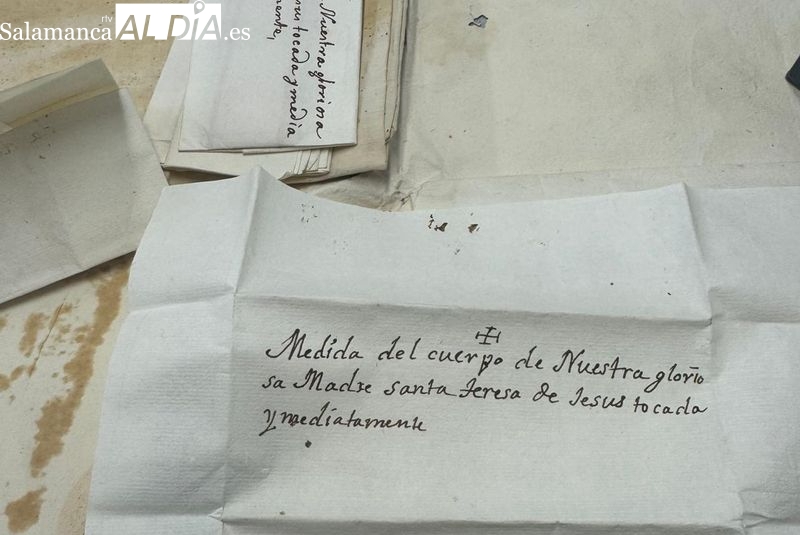 Salamanca rtv ALDÍA.es
Nuestra gloriosa
sus tocada y media
mente,
Medida del cuerpo de Nuestra glorio
sa Madre santa teresa de Jesus tocada
ymediatamente